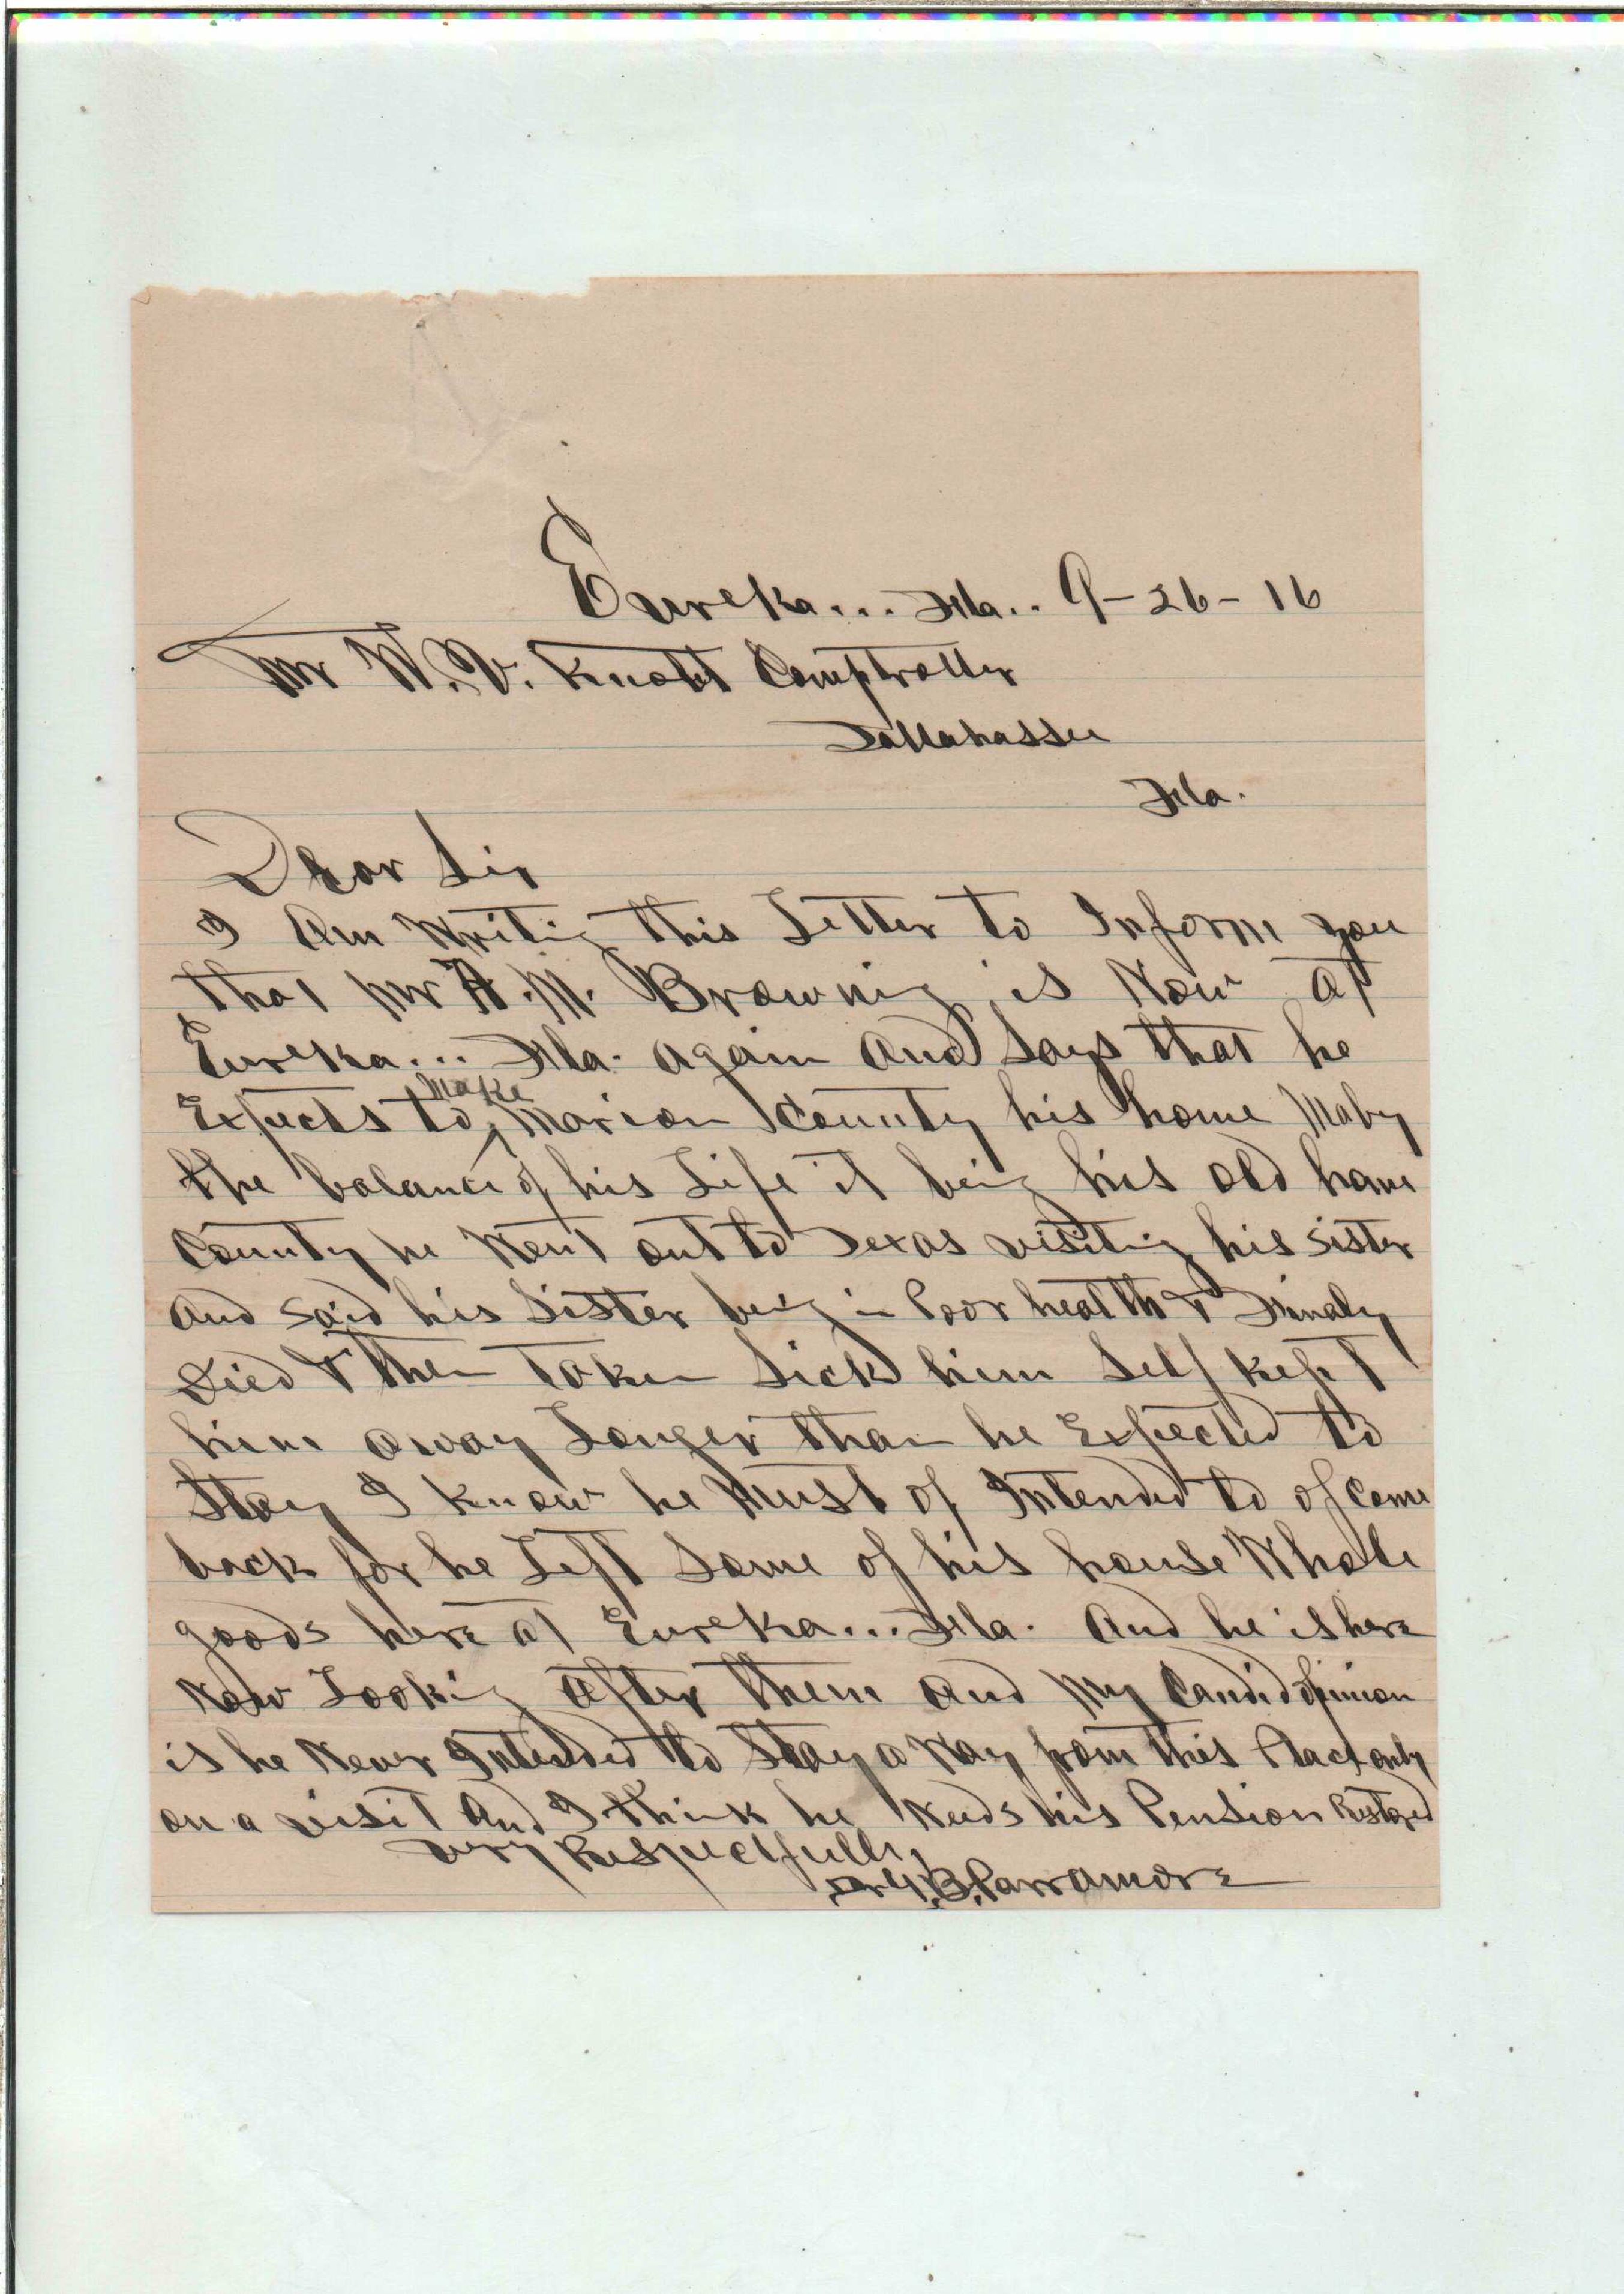 Eureka... Fla.. 9-26-16
Mr W.V. Knott Comptroller
Tallahassee
Fla.
Dear Sir
I Am Writing this Letter to Inform you
that Mr A.M. Browning is Now at
Eureka... Fla. Again And Says that he
Expects to make Marion County his home Maby
the balance of his Life it being his old home
County he Went out to Texas visiting his sister
And Said his Sister being in Poor health & Finaly
Died & then Taken Sick him Self kept
him away Longer than he Expected to
Stay I know he Must of Intended to of Come
back for he Left Some of his house Whole
goods here at Eureka... Fla. And he is here
Now Looking After them and My Candid opinion
is he Never Intended to Stay a Way from this Place only
on a visit And I think he Needs his Pension Restored
Very Respectfully
B. Parramore